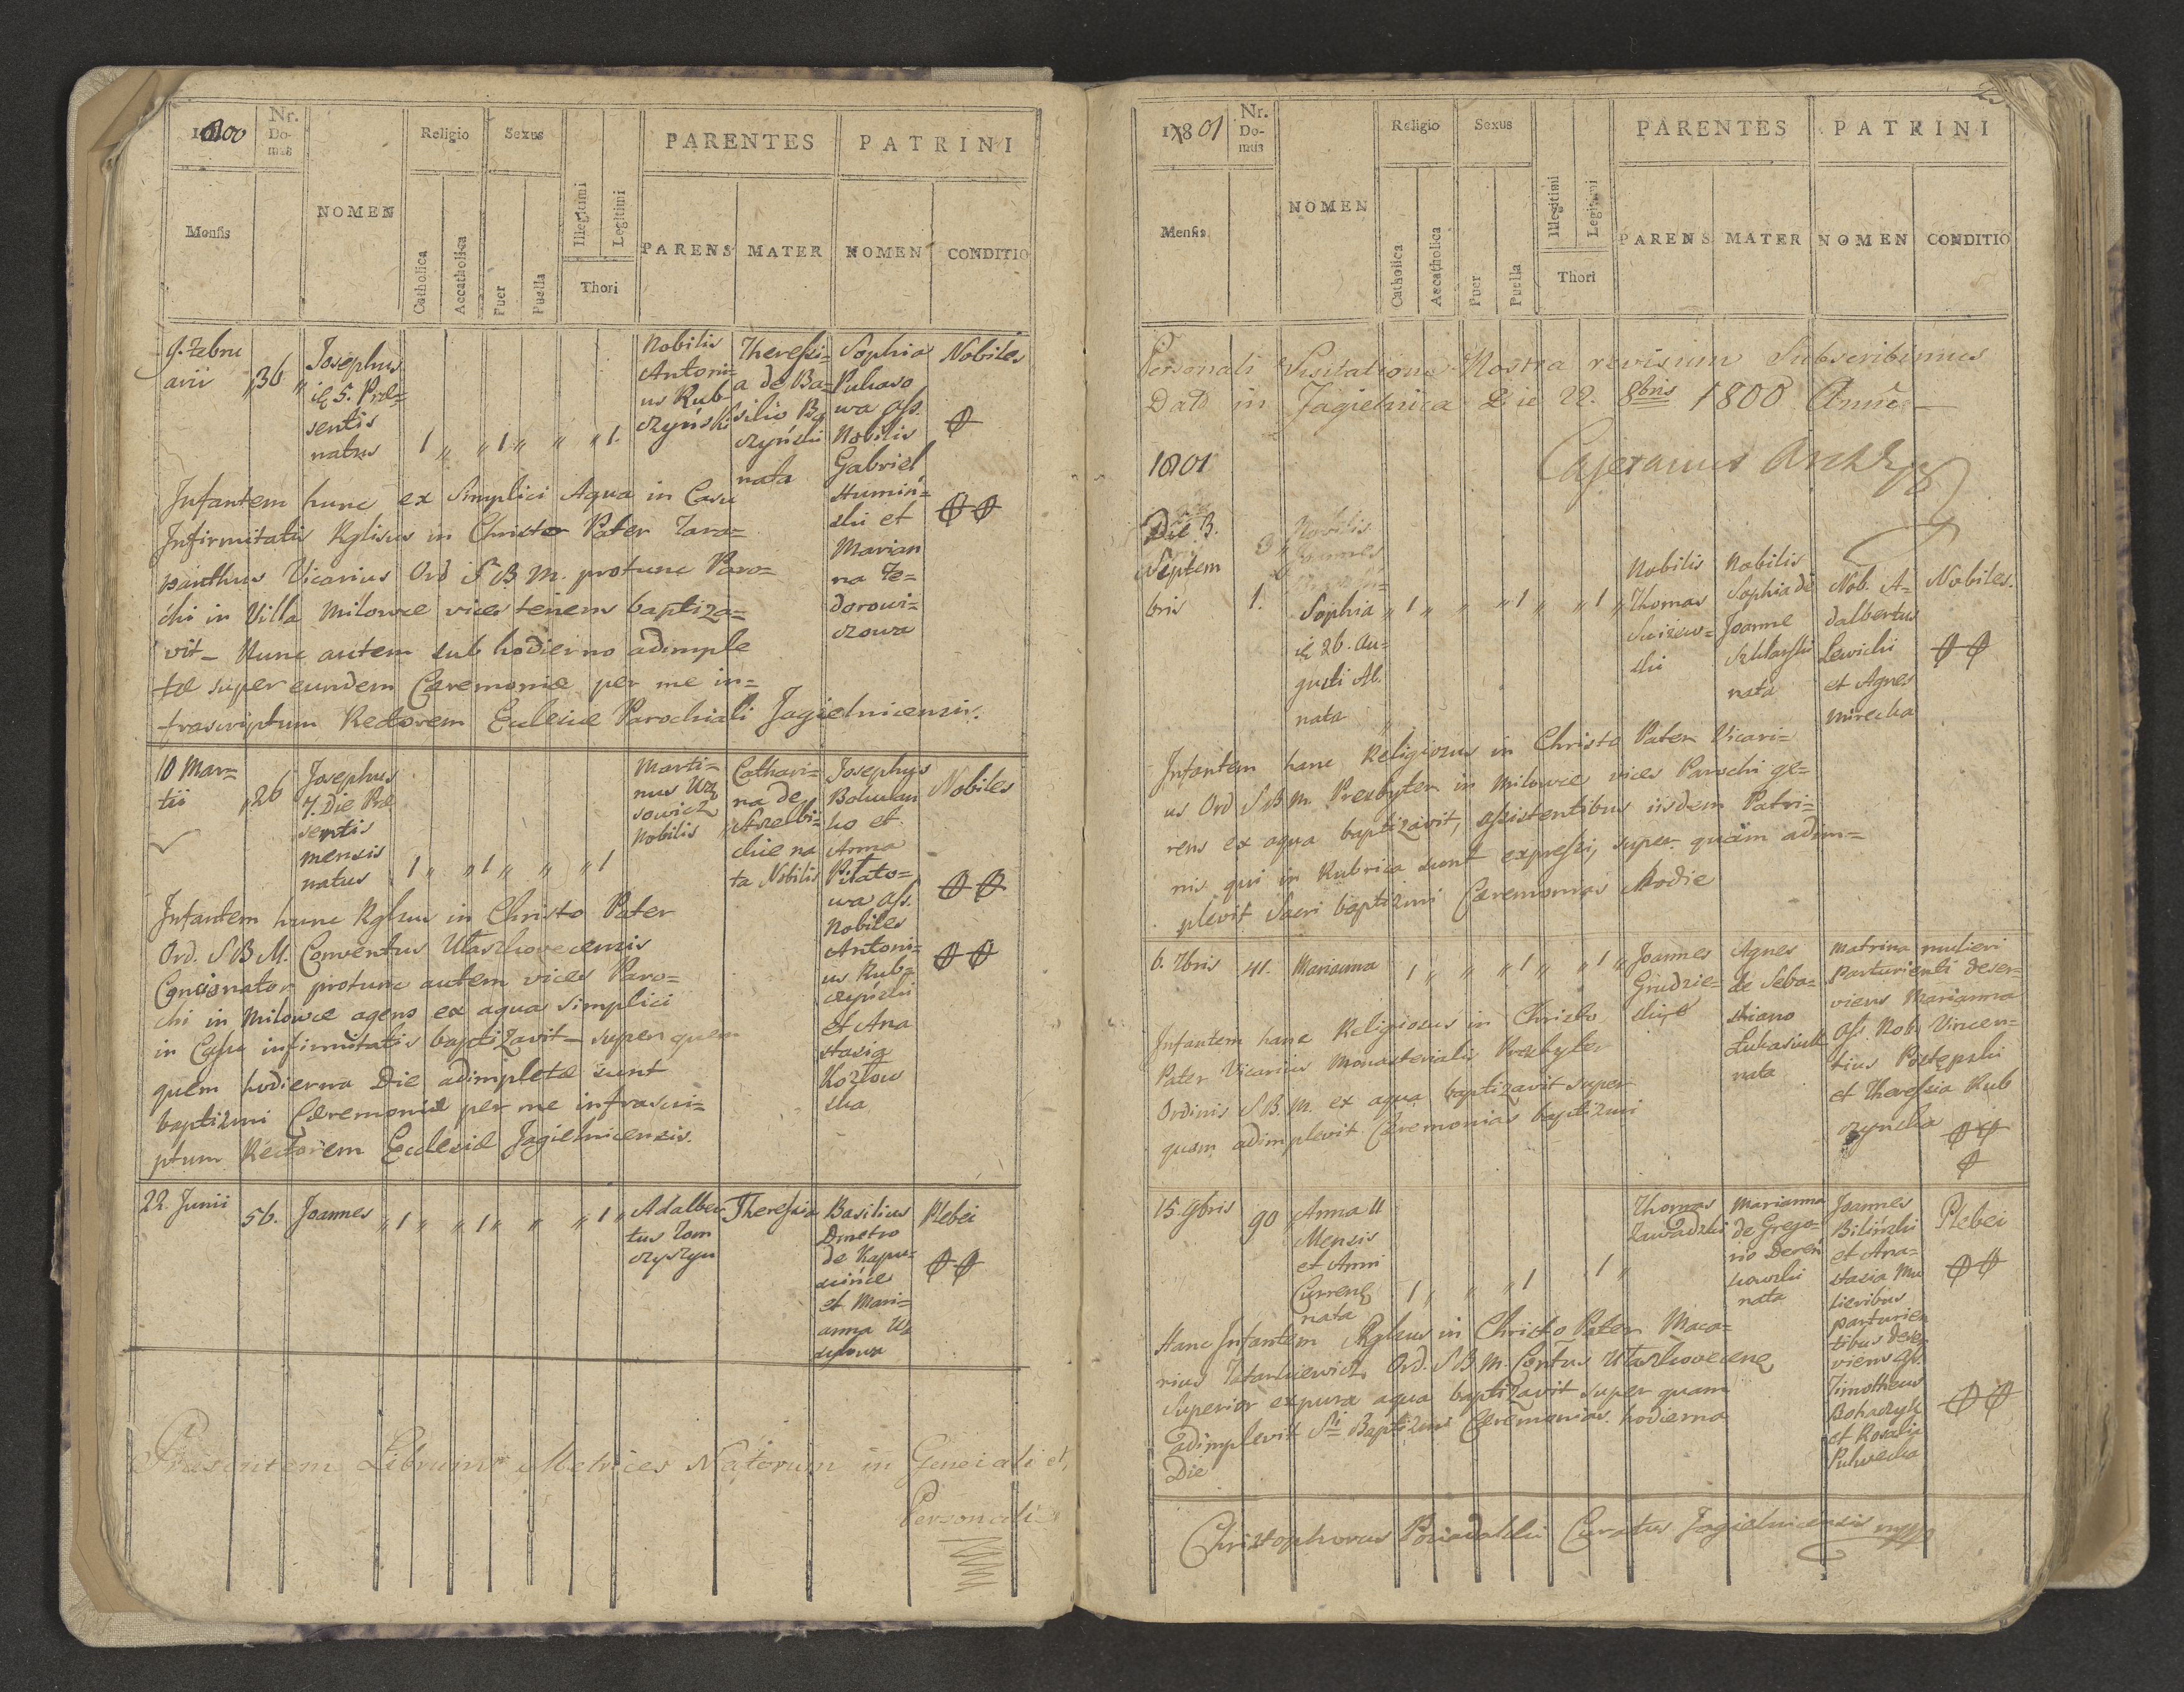 1800
Nr. Domus
NOMEN
Religio
Sexus
PARENTES
PATRINI
Mensis
Catholica
Accatholica
Puer
Puella
Illegitimi
Legitimi
Thori
PARENS
MATER
NOMEN
CONDITIO
9. Febru
arii
36
Josephus
5. Præ=
sentis
natus
1 " " 1 " " " 1.
Nobilis
Antoni=
us Rub
czyński
Theressi=
a de Ba=
silio
czyński
nata
Sophia
Puhaso
wa ass.
Nobilis
Gabriel
Humiń=
ski et
Marian
na Te=
dorowi=
czowa
Nobiles
Infantem hunc ex Simplici Aqua in Casu
Infirmitatis Rglisus in Christo Pater Tara=
panthus Vicarius Ord S B. M. protunc Paro=
chi in Villa Milowce vices tenens baptiza=
vit _ Nunc autem sub hodierno adimple
tæ super eundem Cæremoniæ per me in=
frascriptum Rectorem Eclesiæ Parochiali Jagielnicensis.
10 Mar=
tii
26
Josephus
7. Die Præ
sentis
mensis
natus
1 " " 1 " " " 1
Marti=
nus Wą
sowicz
Nobilis
Cathari=
na de
Strzelbi=
ckie na
ta Nobilis
Josephus
Bohdan
ko et
Anna
Pilato=
wa ass.
Nobiles
Antoni=
us Rub=
czyński
et Ana
stasia
Kozłow
ska
Nobiles
Infantem hunc Rglsus in Christo Pater
Ord. S B M. Conventus Ułaszkovecensis
Concionator protunc autem vices Paro=
chi in Milowce agens ex aqua simplici
in Casu infirmitatis baptizavit _ super quem
quem hodierna Die adimpletæ sunt
baptizmi Cæremoniæ per me infrascri=
ptum Rectorem Ecclesiæ Jagielnicensis.
22. Junii
56.
Joannes
" 1 " " 1 " " " 1 "
Adalber
tus Tom
czyszyn
Theressia
Basilius
Dmetro
de Kapu=
scińce
et Mari=
anna
Plebei
Præsentem Librum Metrices Natorum in Generali et,
Personali
1801
Nr. Domus
NOMEN
Religio
Sexus
PARENTES
PATRINI
Mensis
Catholica
Accatholica
Puer
Puella
Illegitimi
Legitimi
Thori
PARENS
MATER
NOMEN
CONDITIO
Personali Visitatione Nostra revisum Subscribimus
Datt in Jagielnica Die 22. 8bris 1800 Anno
1801
Cajetanus
Die 3.
Septem
bris
1.
Sophia
26. Au=
gusti
nata
" 1 " " " 1 " " 1 "
Nobilis
Thomas
ski
Nobilis
Sophia de
Joanne
nata
Nob. A=
dalbertus
Lewicki
et Agnes
Mirecka
Nobiles.
Infantem hanc Religiosus in Christo Pater Vicari=
us Ord S B M. Presbyter in Milowce vices Parochi ge=
rens ex aqua baptizavit, assistentibus iisdem Patri=
nis qui in Rubrica sunt expressi, super quam adim=
plevit Sacri baptizmi Cæremonias Hodie
6. 7bris
41.
Marianna
1 " " " 1 " " 1 "
Joannes
Grudzie=
Agnes
de Seba=
stiano
nata
Matrina mulieri
Parturienti deser=
viens Marianna
ass. Nob. Vincen=
tius Postępski
et Theressia Rub
czyńska
Infantem hanc Religiosus in Christo
Pater Vicarius Monasterialis Presbyter
Ordinis S B. M. ex aqua baptizavit super
quam adimplevit Cæremonias baptizmi
15. 9bris
90
Anna 11
Mensis
et Anni
Curren
nata
1 " " " 1 1 "
Thomas
Zawadzki
Marianna
de Grego=
rio Dereń
nata
Joannes
Biliński
et Ana=
stasia Mu
lieribus
parturien
tibus deser
viens ass.
Timotheus
Bohaczyk
et Rosalia
Puhaecka
Plebei
Hanc Infantem Rglsus in Christo Pater Maca=
rius Tatarkiewicz Ord. S B M. Contus Ułaszkovecens
Superior ex pura aqua baptizavit super quam
adimplevit Sti Baptizmi Cæremonias hodierna
Die
Christophorus Posiadalski Curatus Jagielnicensis mpp